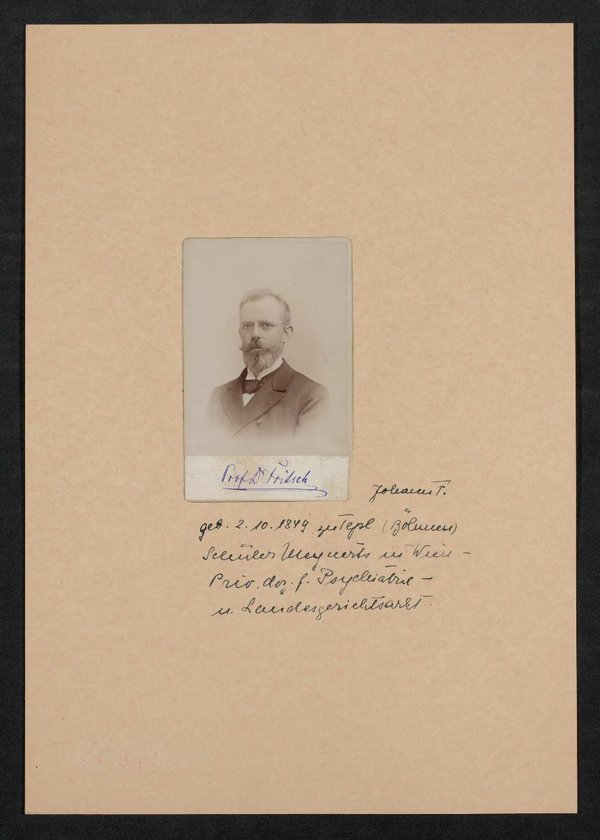 Prof. Dr Fritsch
Johann F.
geb. 2. 10. 1849 zu Tepl (Böhmen)
Schüler Meynerts in Wien –
Priv. doz. f. Psychiatrie –
u. Landesgerichtsarzt.